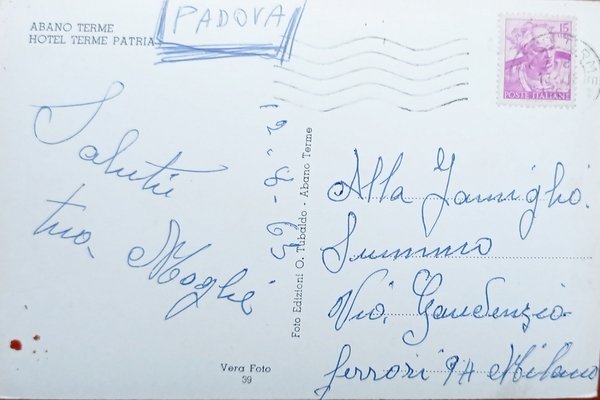 PADOVA
ABANO TERME
HOTEL TERME PATRIA
15
POSTE ITALIANE
Saluti
tua Moglie
12-8-63
Foto Edizioni O. Tubaldo - Abano Terme
Alla Famiglia
Summo
Via Gaudenzio
ferrari 9A Milano
Vera Foto
39